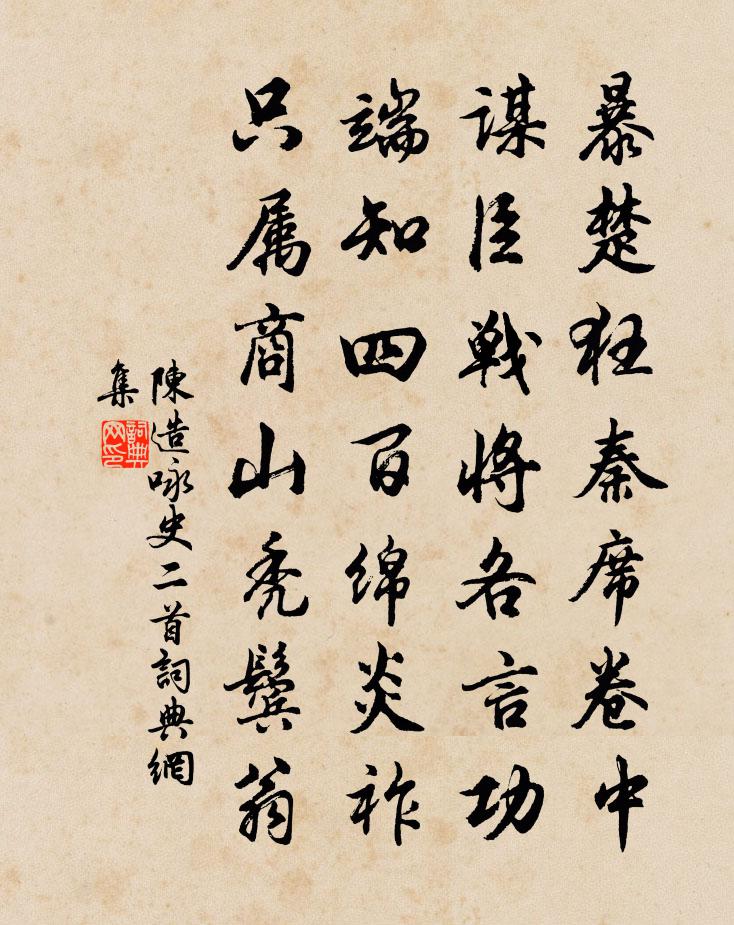 暴楚狂秦席卷中
謀臣戰將各言功
端知四百綿炎祚
只属商山禿鬢翁
陳造咏史二首詞典網
集
詞典
网印